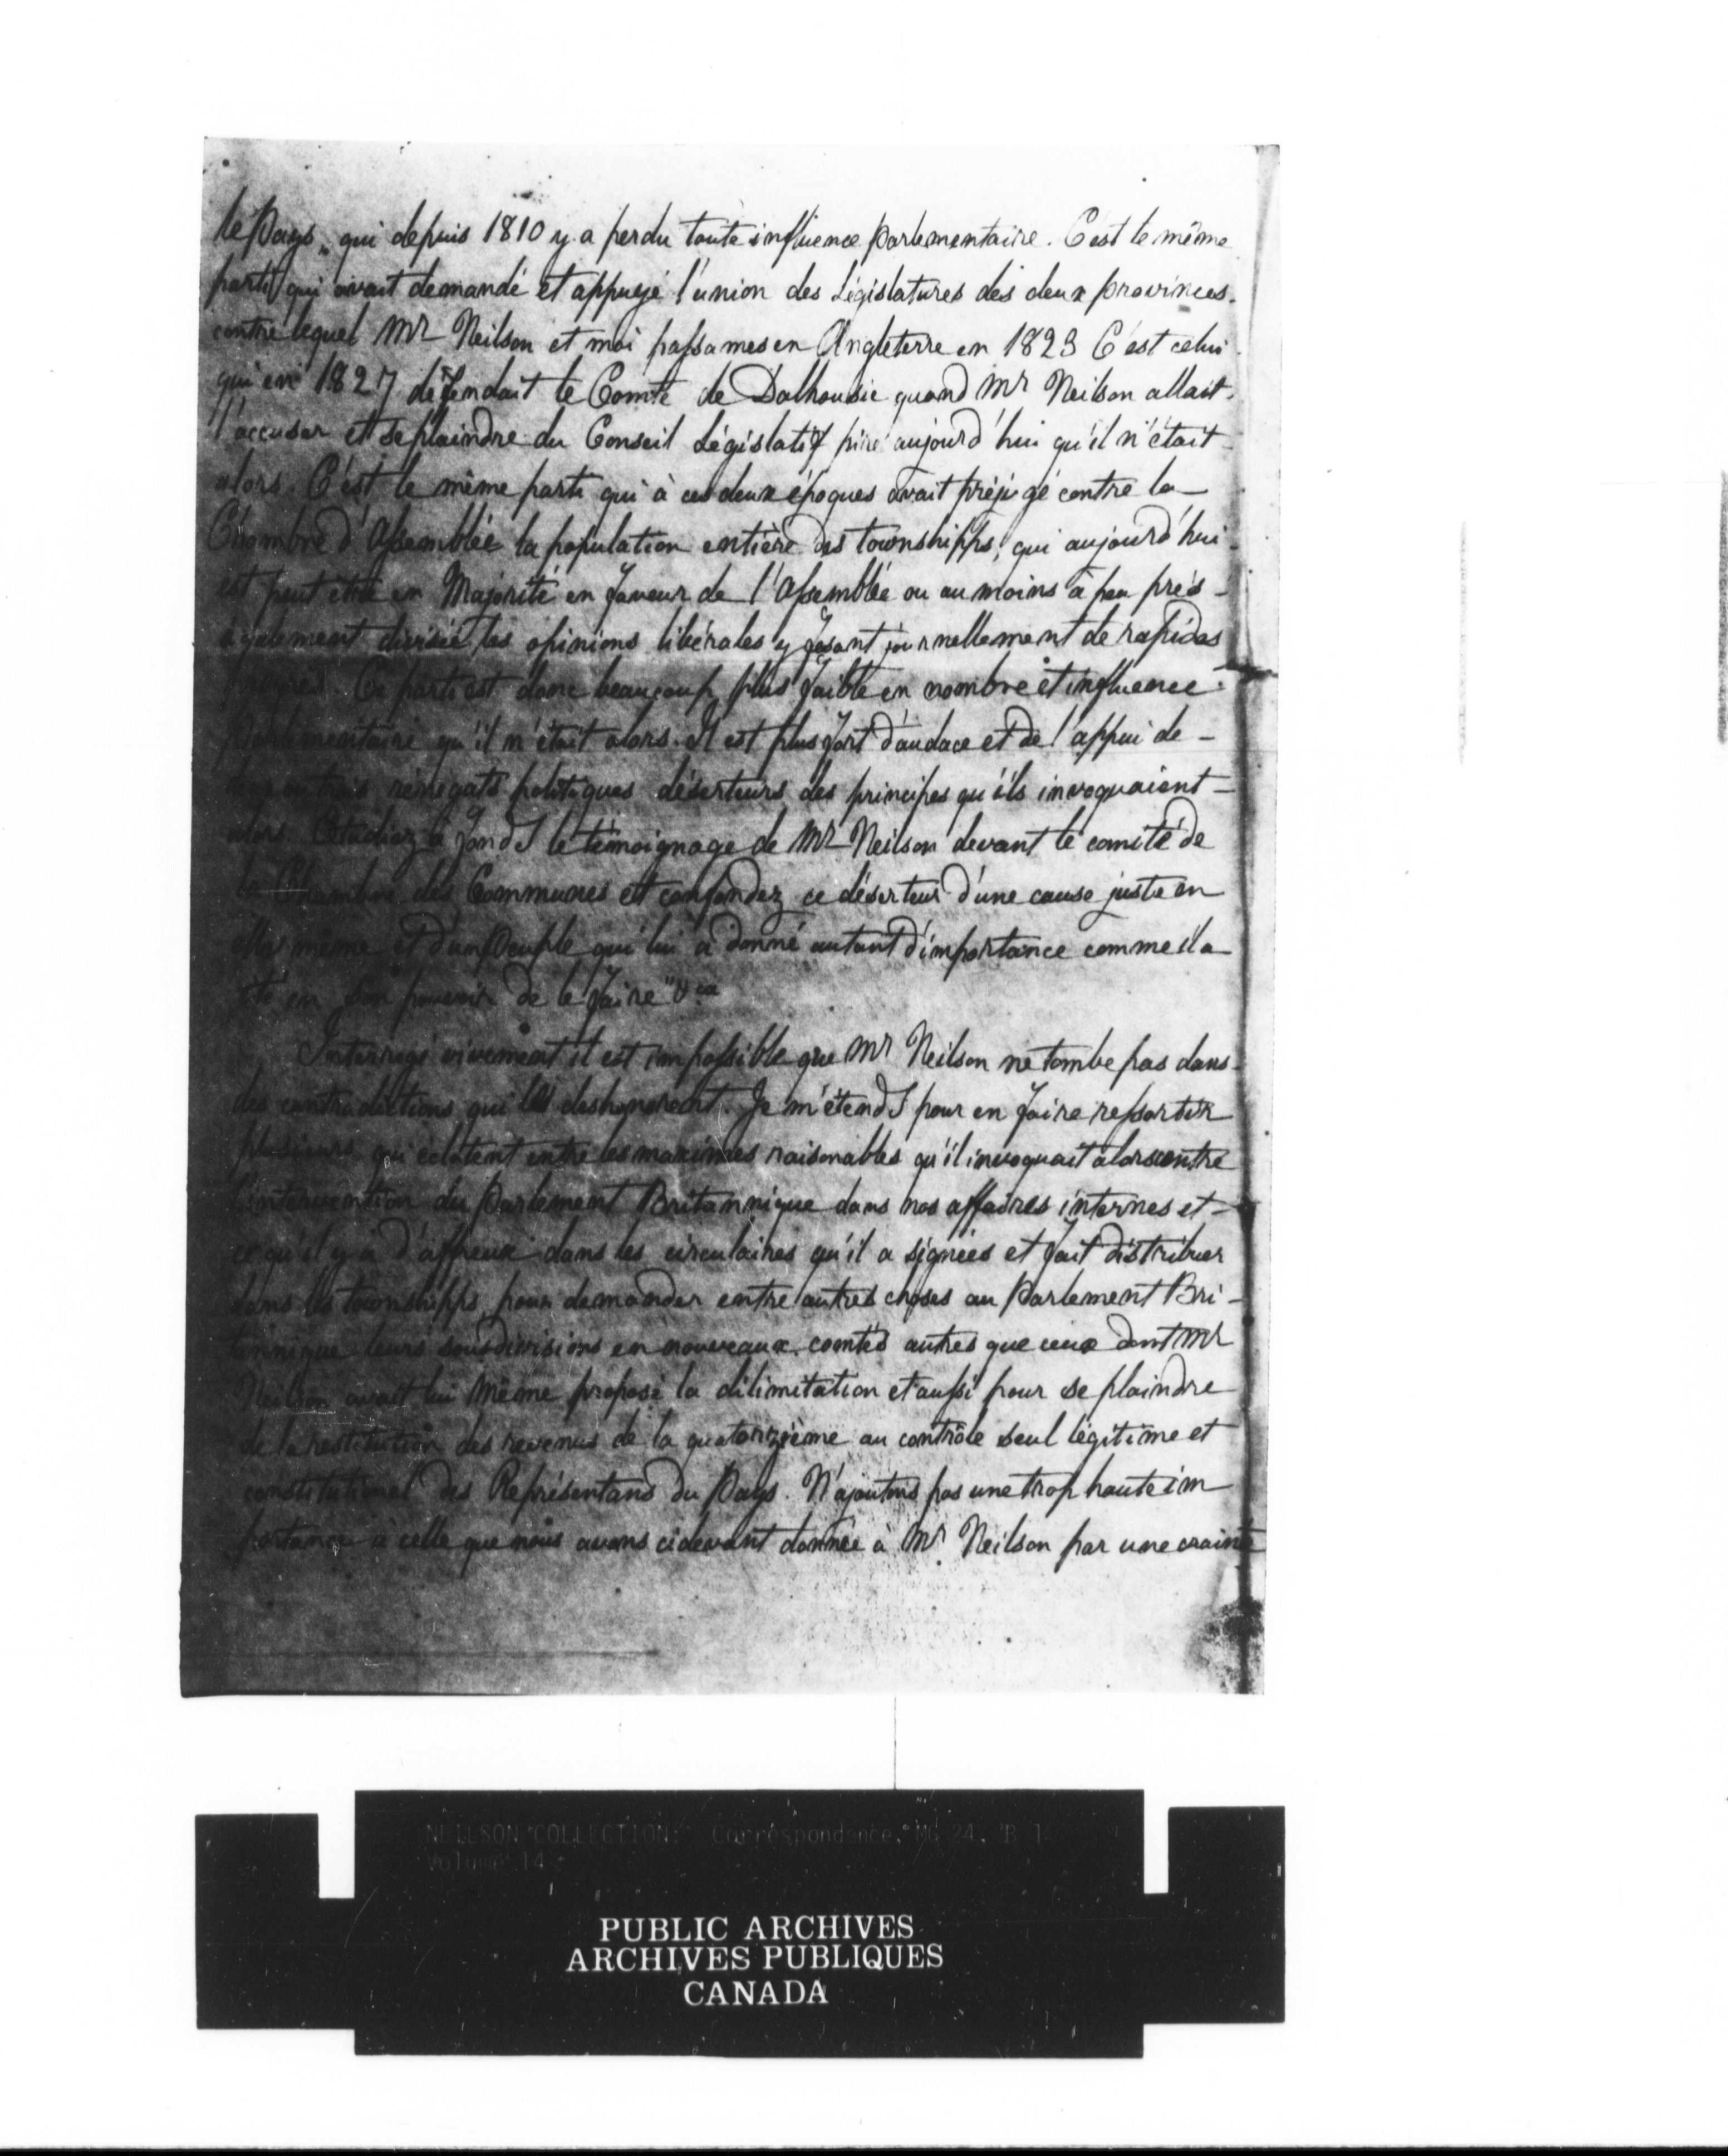 le Pays, qui depuis 1810 y a perdu toute influence Parlementaire. C'est le même
parti qui avait demandé et appuyé l'union des Législatures des deux provinces.
contre lequel Mr Neilson et moi passames en Angleterre en 1823 C'est celui
qui en 1827 défendait le Comte de Dalhousie quand Mr Neilson allait
l'accuser et se plaindre du Conseil Législatif pire aujourd'hui qu'il n'était
alors. C'est le même parti qui à ces deux époques avait préjugé contre la
Chambre d'Assemblée la population entière des townshipps, qui aujourd'hui
est peut etre en Majorité en faveur de l'Assemblée ou au moins à peu près
également divisée les opinions libérales y fesant journellement de rapides
progres. Ce parti est donc beaucoup plus faible en nombre et influence
Parlementaire qu'il n'était alors. Il est plus fort d'audace et de l'appui de
deux ou trois renégats politiques déserteurs des principes qu'ils invoquaient
alors. Etudiez à fonds le témoignage de Mr Neilson devant le comité de
la Chambre des Communes et confondez ce déserteur d'une cause juste en
elle même et d'un Peuple qui lui a donné autant d'importance comme il a
été en son pouvoir de le faire"
Interrogé vivement il est impossible que Mr Neilson ne tombe pas dans
des contradictions qui le deshonorent. Je m'étends pour en faire ressortir
plusieurs qui éclatent entre les maximes raisonables qu'il invoquait alors contre
l'intervention du Parlement Britannique dans nos affaires internes et
ce qu'il y a d'affreux dans les circulaires qu'il a signées et fait distribuer
dans les townshipps pour demander entre autres choses au Parlement Bri-
tannique leurs sousdivisions en nouveaux comtés autres que ceux dont Mr
Neilson avait lui Même proposé la délimitation et aussi pour se plaindre
de la restitution des revenus de la quatorzième au contrôle seul légitime et
constitutionel des Représentans du Pays. N'ajoutons pas une trop haute im
portance à celle que nous avons cidevant donnée à Mr Neilson par une crainte
NEILSON COLLECTION: Correspondence, MG 24, B 1
Volume 14
PUBLIC ARCHIVES
ARCHIVES PUBLIQUES
CANADA